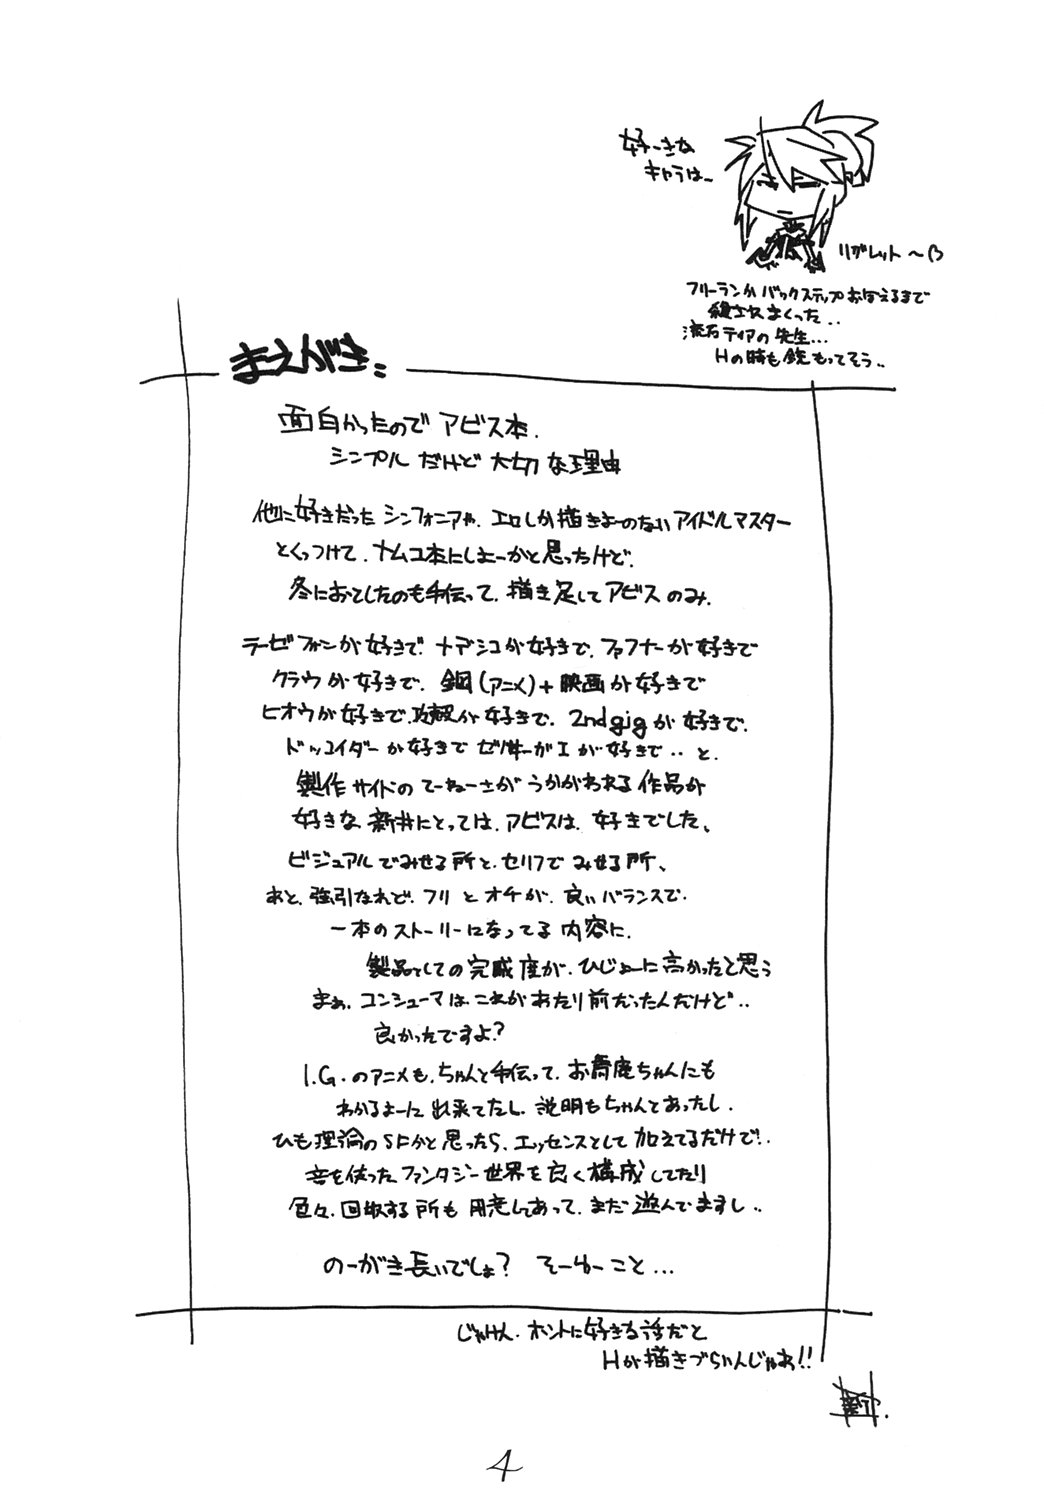 好ーきな
キャラは〜
リグレット〜
フリーランかバックステップおぼえるまで
殺されまくった..
流石ティアの先生...
Hの時も銃もってそう..
まえがき..
面白かったのでアビス本.
シンプルだけど大切な理由
他に好きだったシンフォニアや、エロしか描きよーのないアイドルマスター
とくっつけて、ナムコ本にしよーかと思ったけど、
冬におとしたのも手伝って、描き足してアビスのみ.
ラーゼフォンが好きで、ナデシコが好きで、ファフナーが好きで
クラウが好きで、鋼(アニメ)+映画が好きで
ヒオウが好きで、攻殻が好きで、2ndgigが好きで、
ドッコイダーが好きでゼノギーがIが好きで..と、
製作サイドのてーねーさがうかがわれる作品が
好きな新井にとっては、アビスは、好きでした、
ビジュアルでみせる所と、セリフでみせる所、
あと、強引なれど、フリとオチが、良いバランスで、
一本のストーリーになってる内容に、
製品としての完成度が、ひじょーに高かったと思う
まぁ、コンシューマはこれがあたり前だったんだけど..
良かったですよ?
I.G.のアニメも、ちゃんと手伝って、お舞庵ちゃんにも
わかるよーに出来てたし、説明もちゃんとあったし、
ひも理論のSFかと思ったら、エッセンスとして加えてるだけで、.
音を使ったファンタジー世界を良く構成してたり
色々、回収する所も用意してあって、まだ遊んでますし..
のーがき長いでしょ? そーゆーこと...
じゃけん、ホントに好きな話だと
Hが描きづらいんじゃあ!!
4